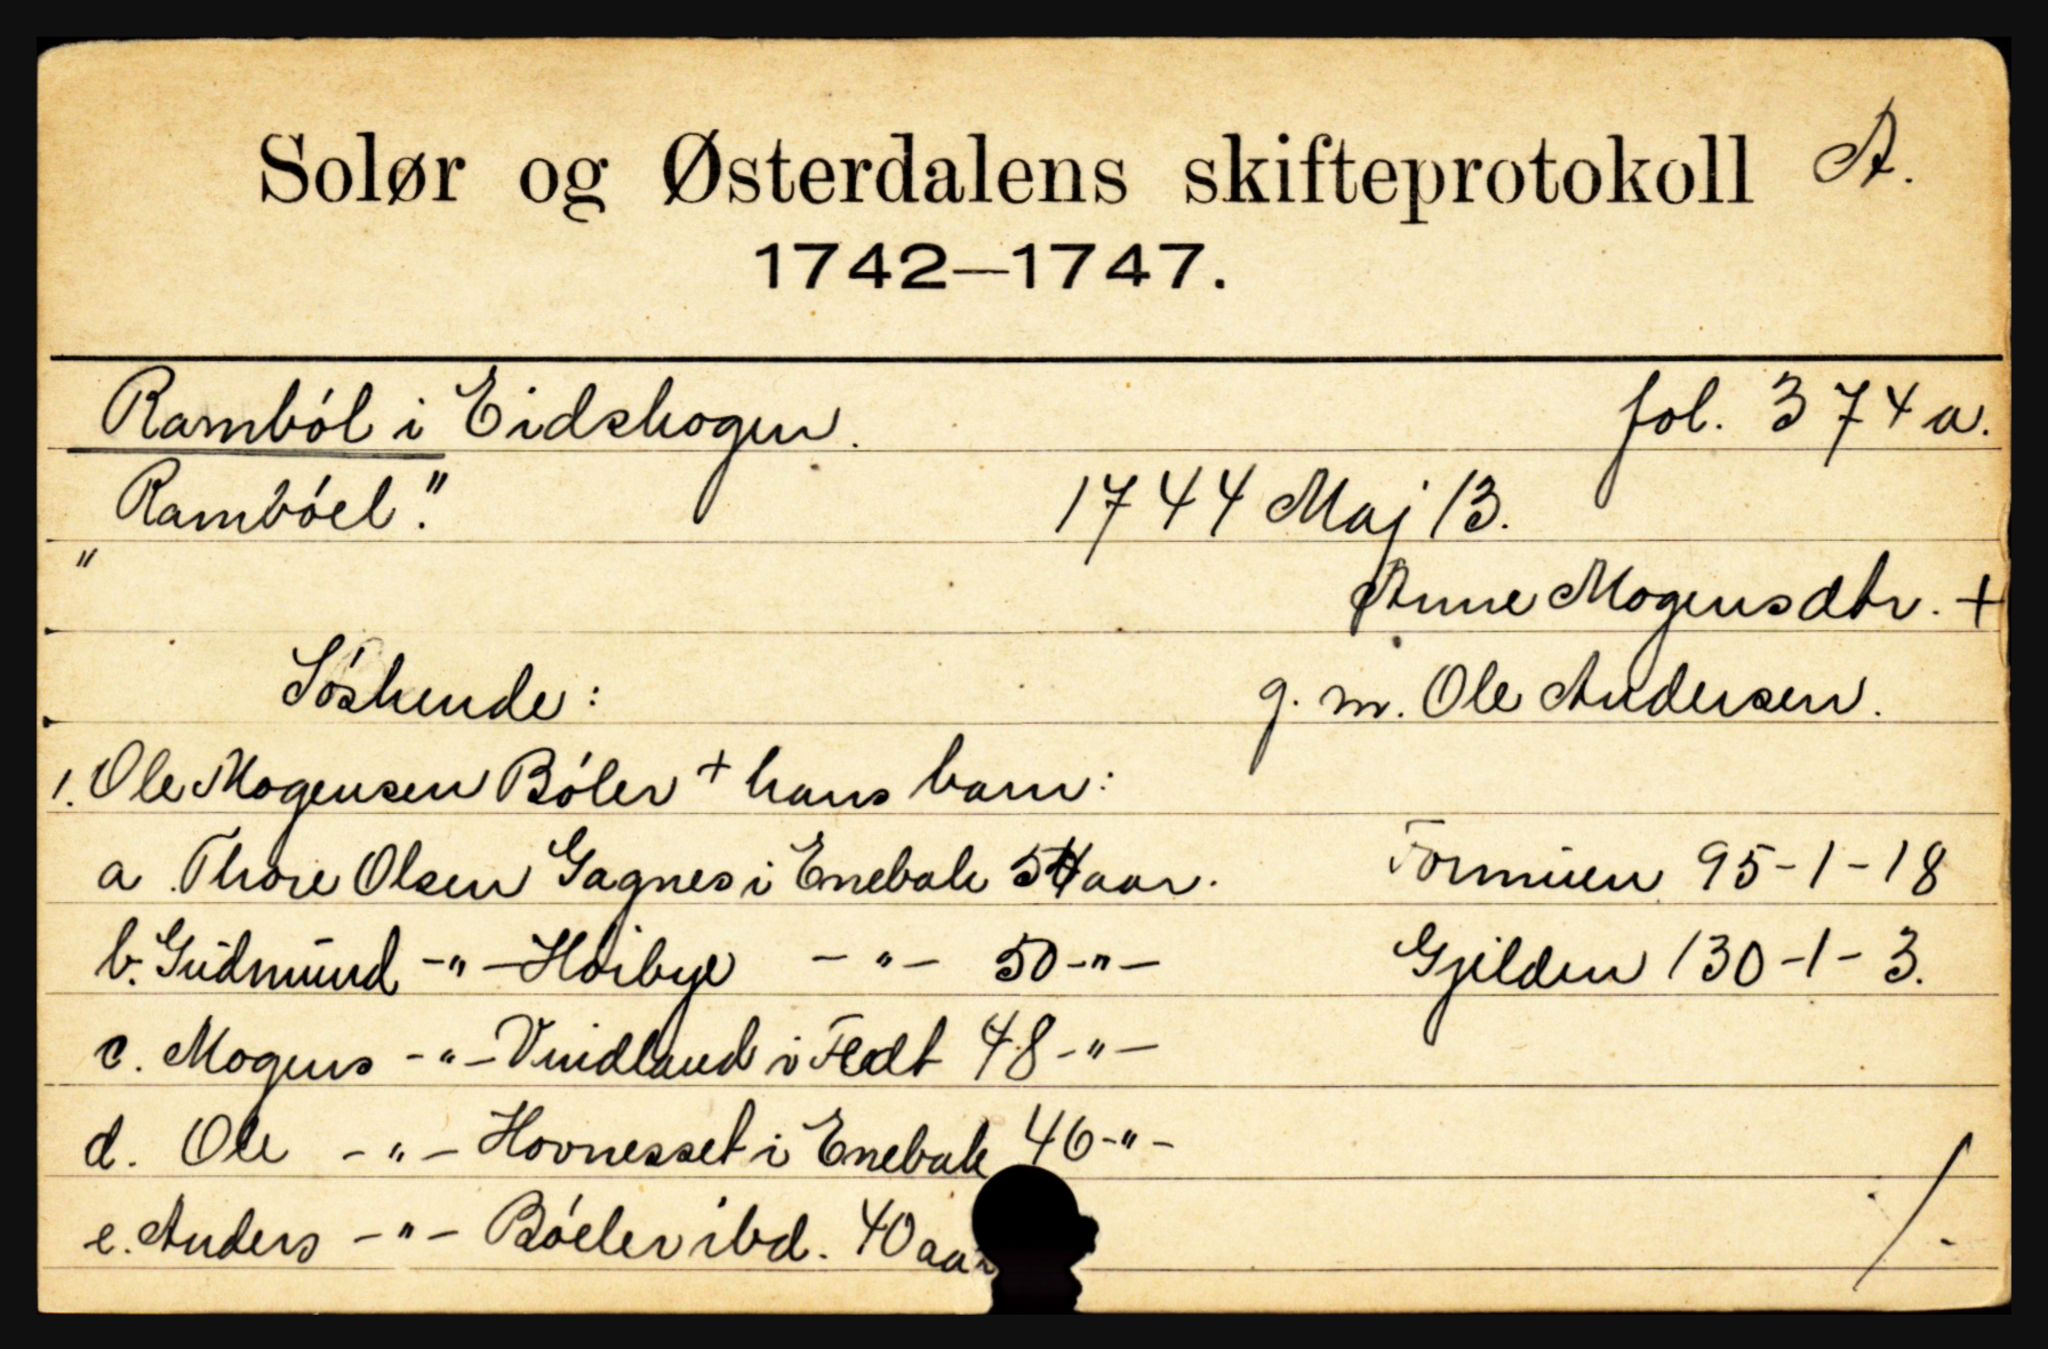 Solør og Østerdalens skifteprotokoll A.
1742—1747.
Ramból i Eidskogen. fol. 374a.
"Rambóel." 1744 Maj 13.
Anne Mogensdtr. +
Sóskende: g. m. Ole Andersen.
1. Ole Mogensen Bóler + hans barn:
a. Thore Olsen Gagnes i Enebak 54 aar. Formuen 95-1-18
b. Gudmund -"- Hóibye -"- 50-"- Gjelden 130-1-3.
c. Mogens -"- Vindland i 48-"-
d. Ole -"- Hovnesset i Enebak 46-"-
e. Anders -"- Bóeler ibd. 40 aar
/-